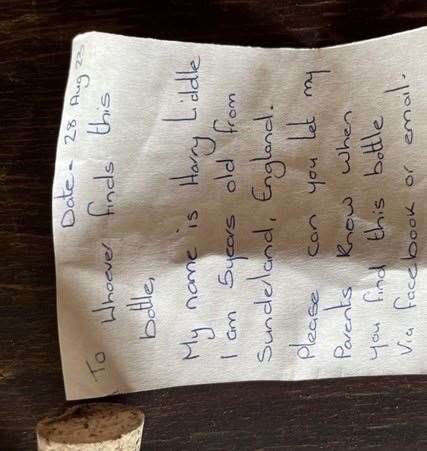 Date - 28 Aug 23
To Whoever finds this
bottle,
My name is Harry Liddle
I am 5years old from
Sunderland, England.
Please can you let my
Parents know when
you find this bottle
Via facebook or email.